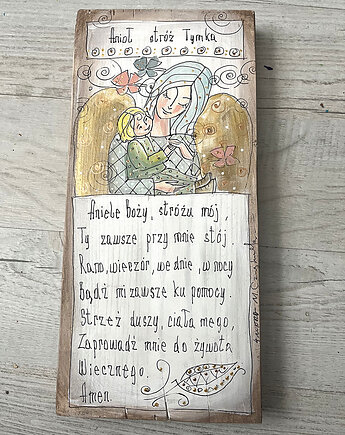 Anioł stróż Tymka
Aniele Boży, stróżu mój,
Ty zawsze przy mnie stój.
Rano, wieczór, we dnie, w nocy
Bądź mi zawsze ku pomocy.
Strzeż duszy, ciała mego,
Zaprowadź mnie do żywota
Wiecznego.
Amen.